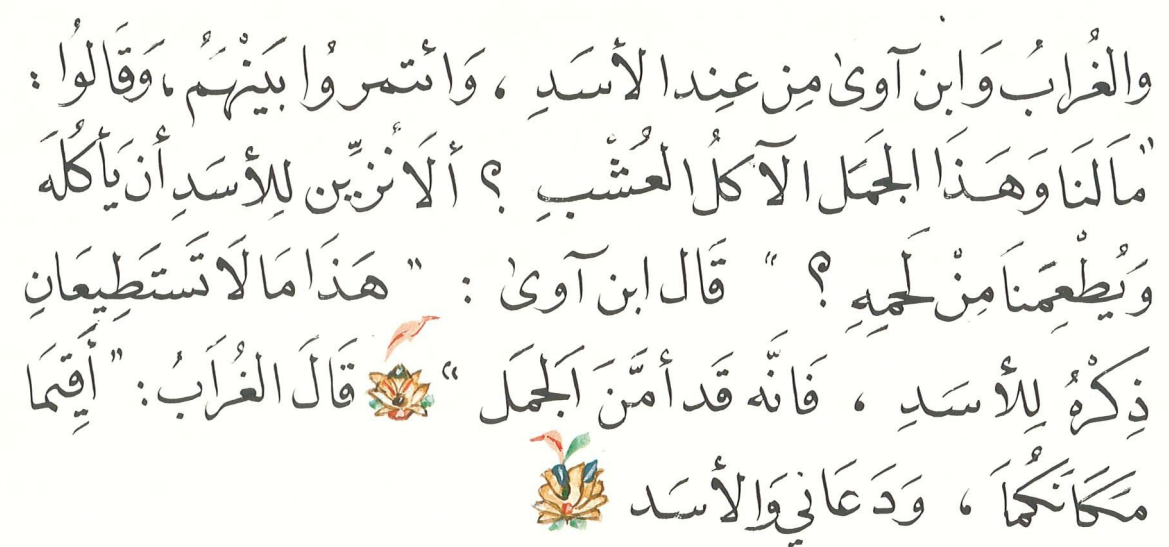 والغُرابُ وَابن آوىٰ مِن عِند الأسَدِ ، وَائتمروُا بَينْهَمُ ، وَقَالوُا :
”مَا لَنَا وَهَذَا الجَمَل الآكلُ العُشْبِ ؟ ألَا نُزيِّن للِأسَدِ أن يَأكُلَه
وَيُطْعِمَنَا مِنْ لَحمِهِ ؟ “ قَال ابن آوىٰ : ” هَذَا مَا لَا تَستَطِيعَانِ
ذِكْرهُ لِلأسَدِ ، فَانَّه قَد أمَّنَ اَلجَمل “ قَالَ الغُرَابُ : ” أَقِيمَا
مَكَانَكُمَا ، وَدَعَاني وَالأسَد